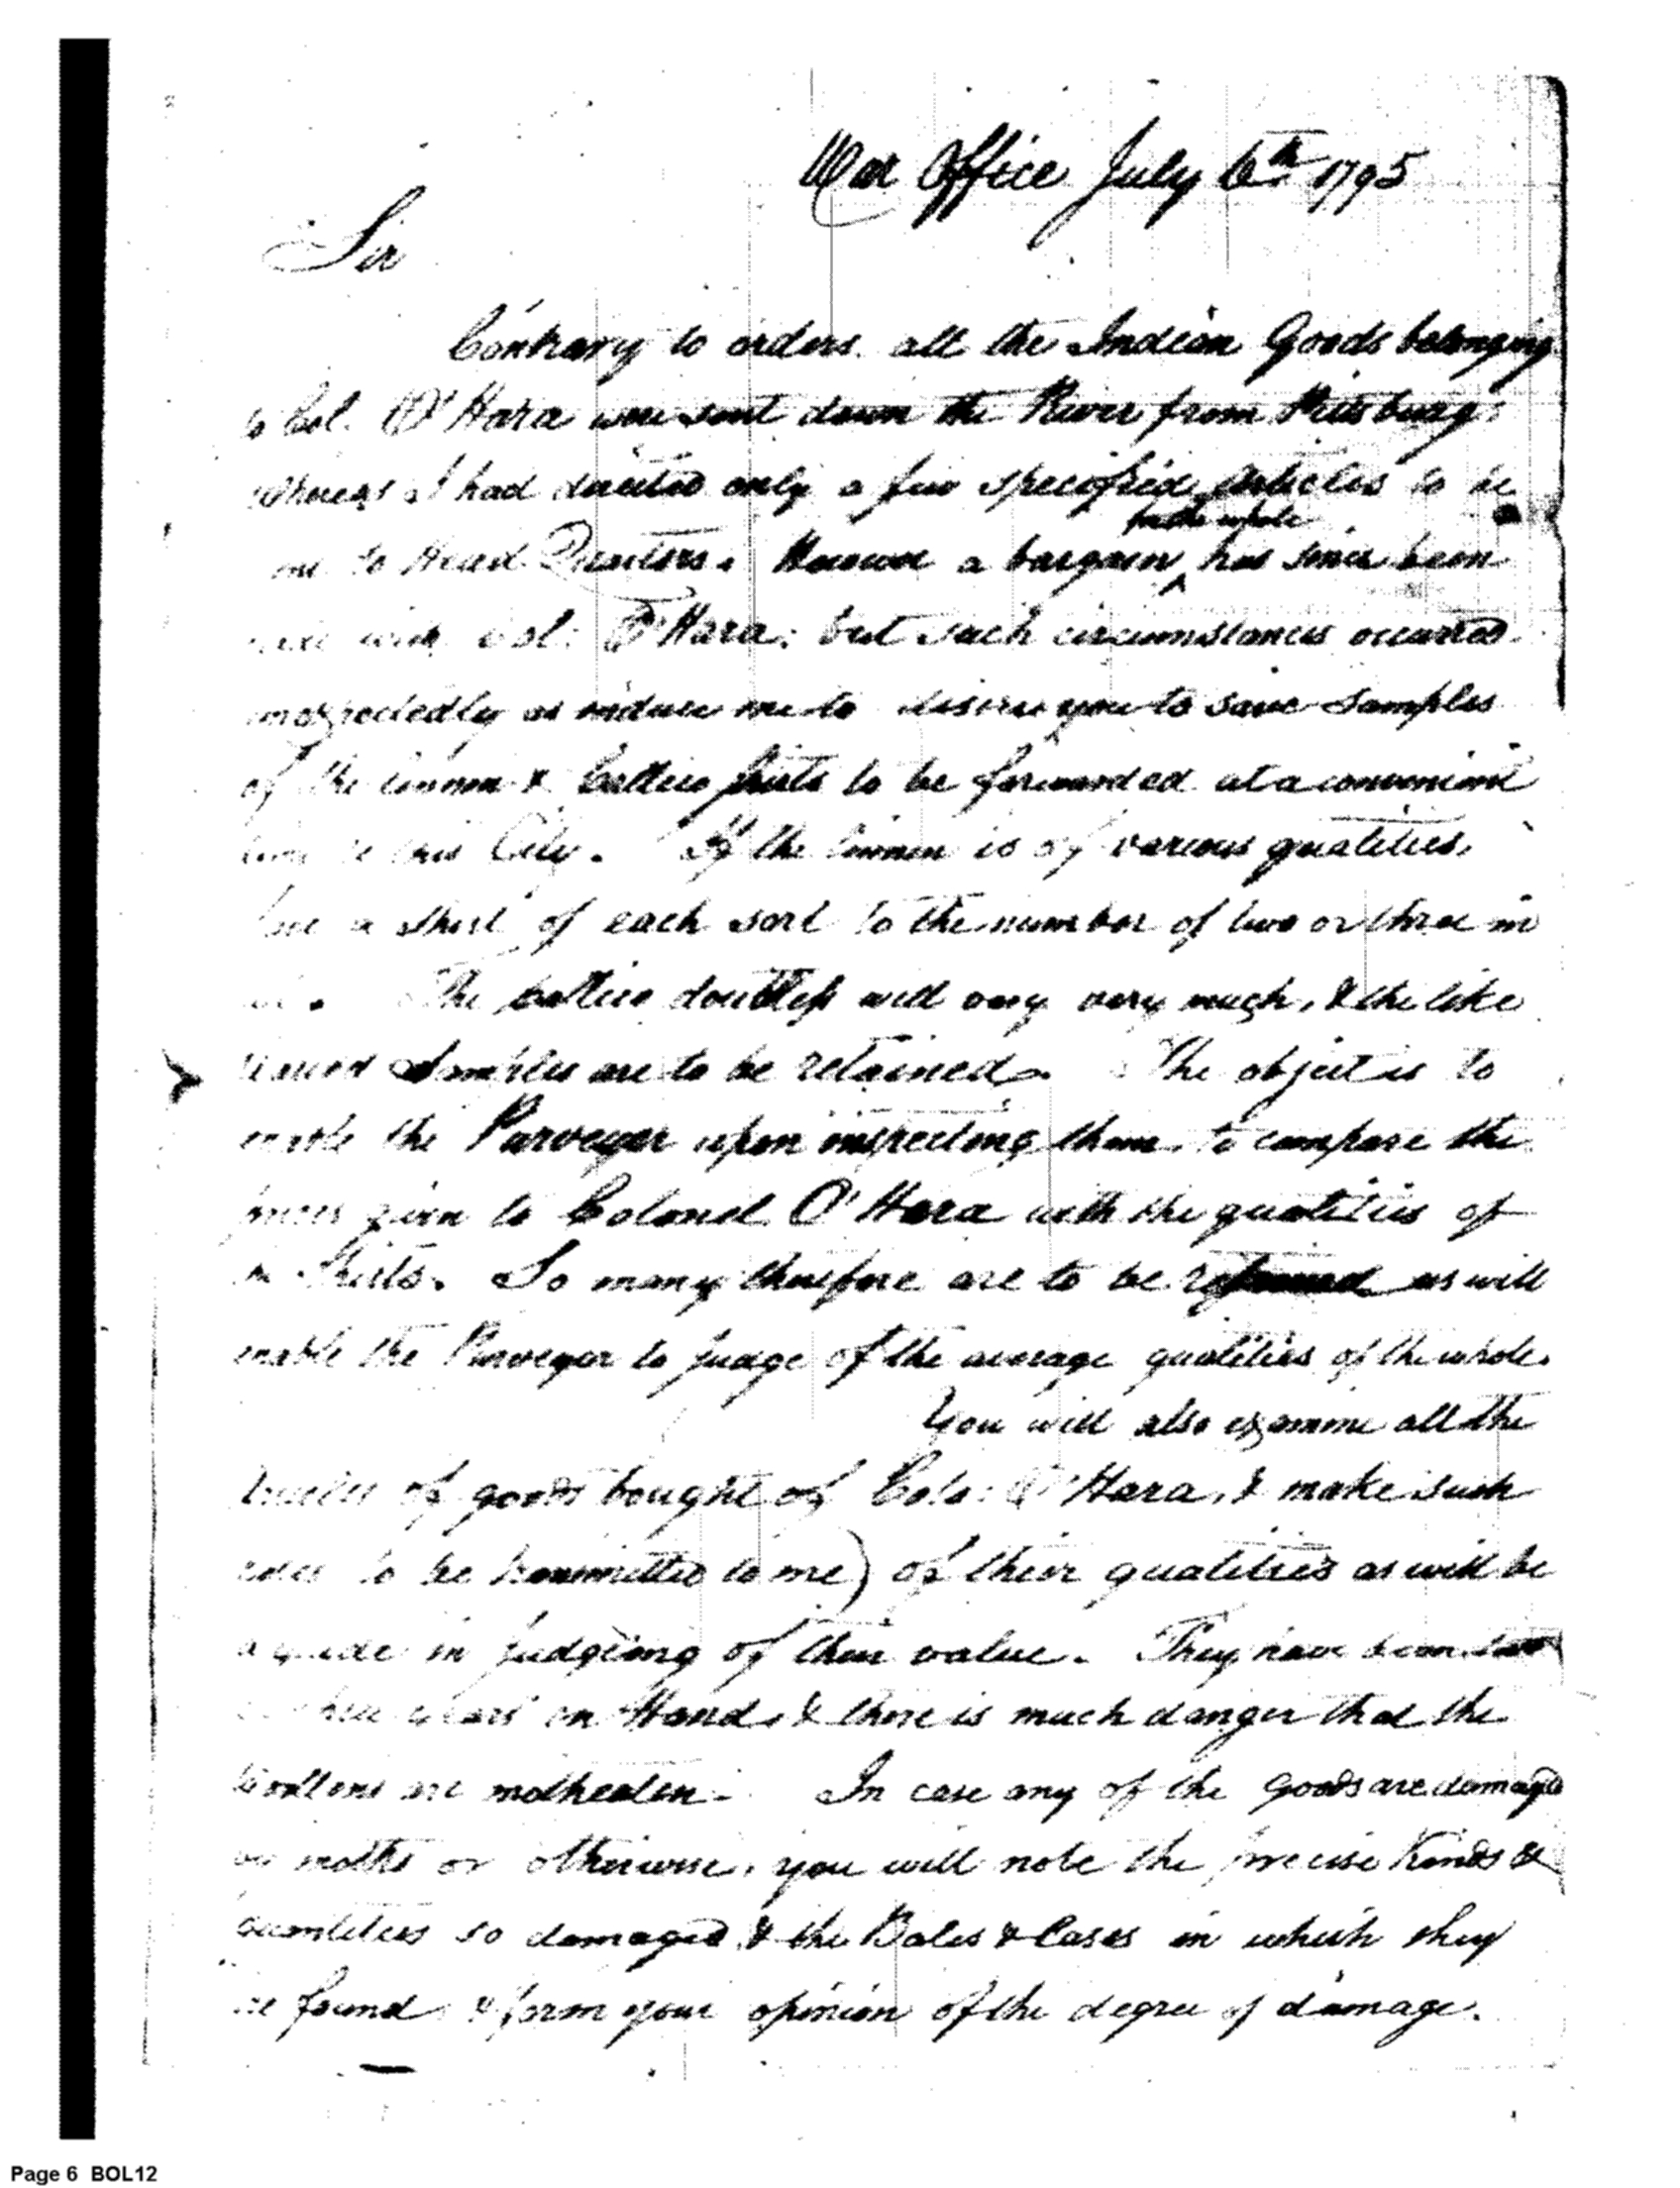 War Office July 6th 1795
Sir
Contrary to orders all the Indian Goods belonging
to Col. O'Hara were sent down the River from Pittsburg:
whereas I had directed only a few specified articles to be
to Head Quarters. However a bargain
for the whole
has since been
with Col: O'Hara: but such circumstances occurred
unexpectedly as induce me to desire you to save samples
of the linnen & Callico shirts to be forwarded at a convenient
time to this City. If the linnen is of various qualities,
a shirt of each sort to the number of two or three in
all. The callico doubtless will vary very much, & the like
samples are to be retained. The object is to
enable the Purveyer upon inspecting them to compare the
prices given to Colonel O'Hara with the qualities of
the shirts. So many therefore are to be retained as will
enable the Purveyer to judge of the average qualities of the whole.
You will also examine all the
of goods bought of Colo: O'Hara, & make such
notes to be transmitted to me) of their qualities as will be
a guide in judgeing of their value. They have been
years on Hand, & there is much danger that the
woollens are motheaten. In case any of the Goods are damaged
by moths or otherwise, you will note the precise Kinds &
quantities so damaged & the Bales & Cases in which they
are found & form your opinion of the degree of damage.
Page 6 BOL12